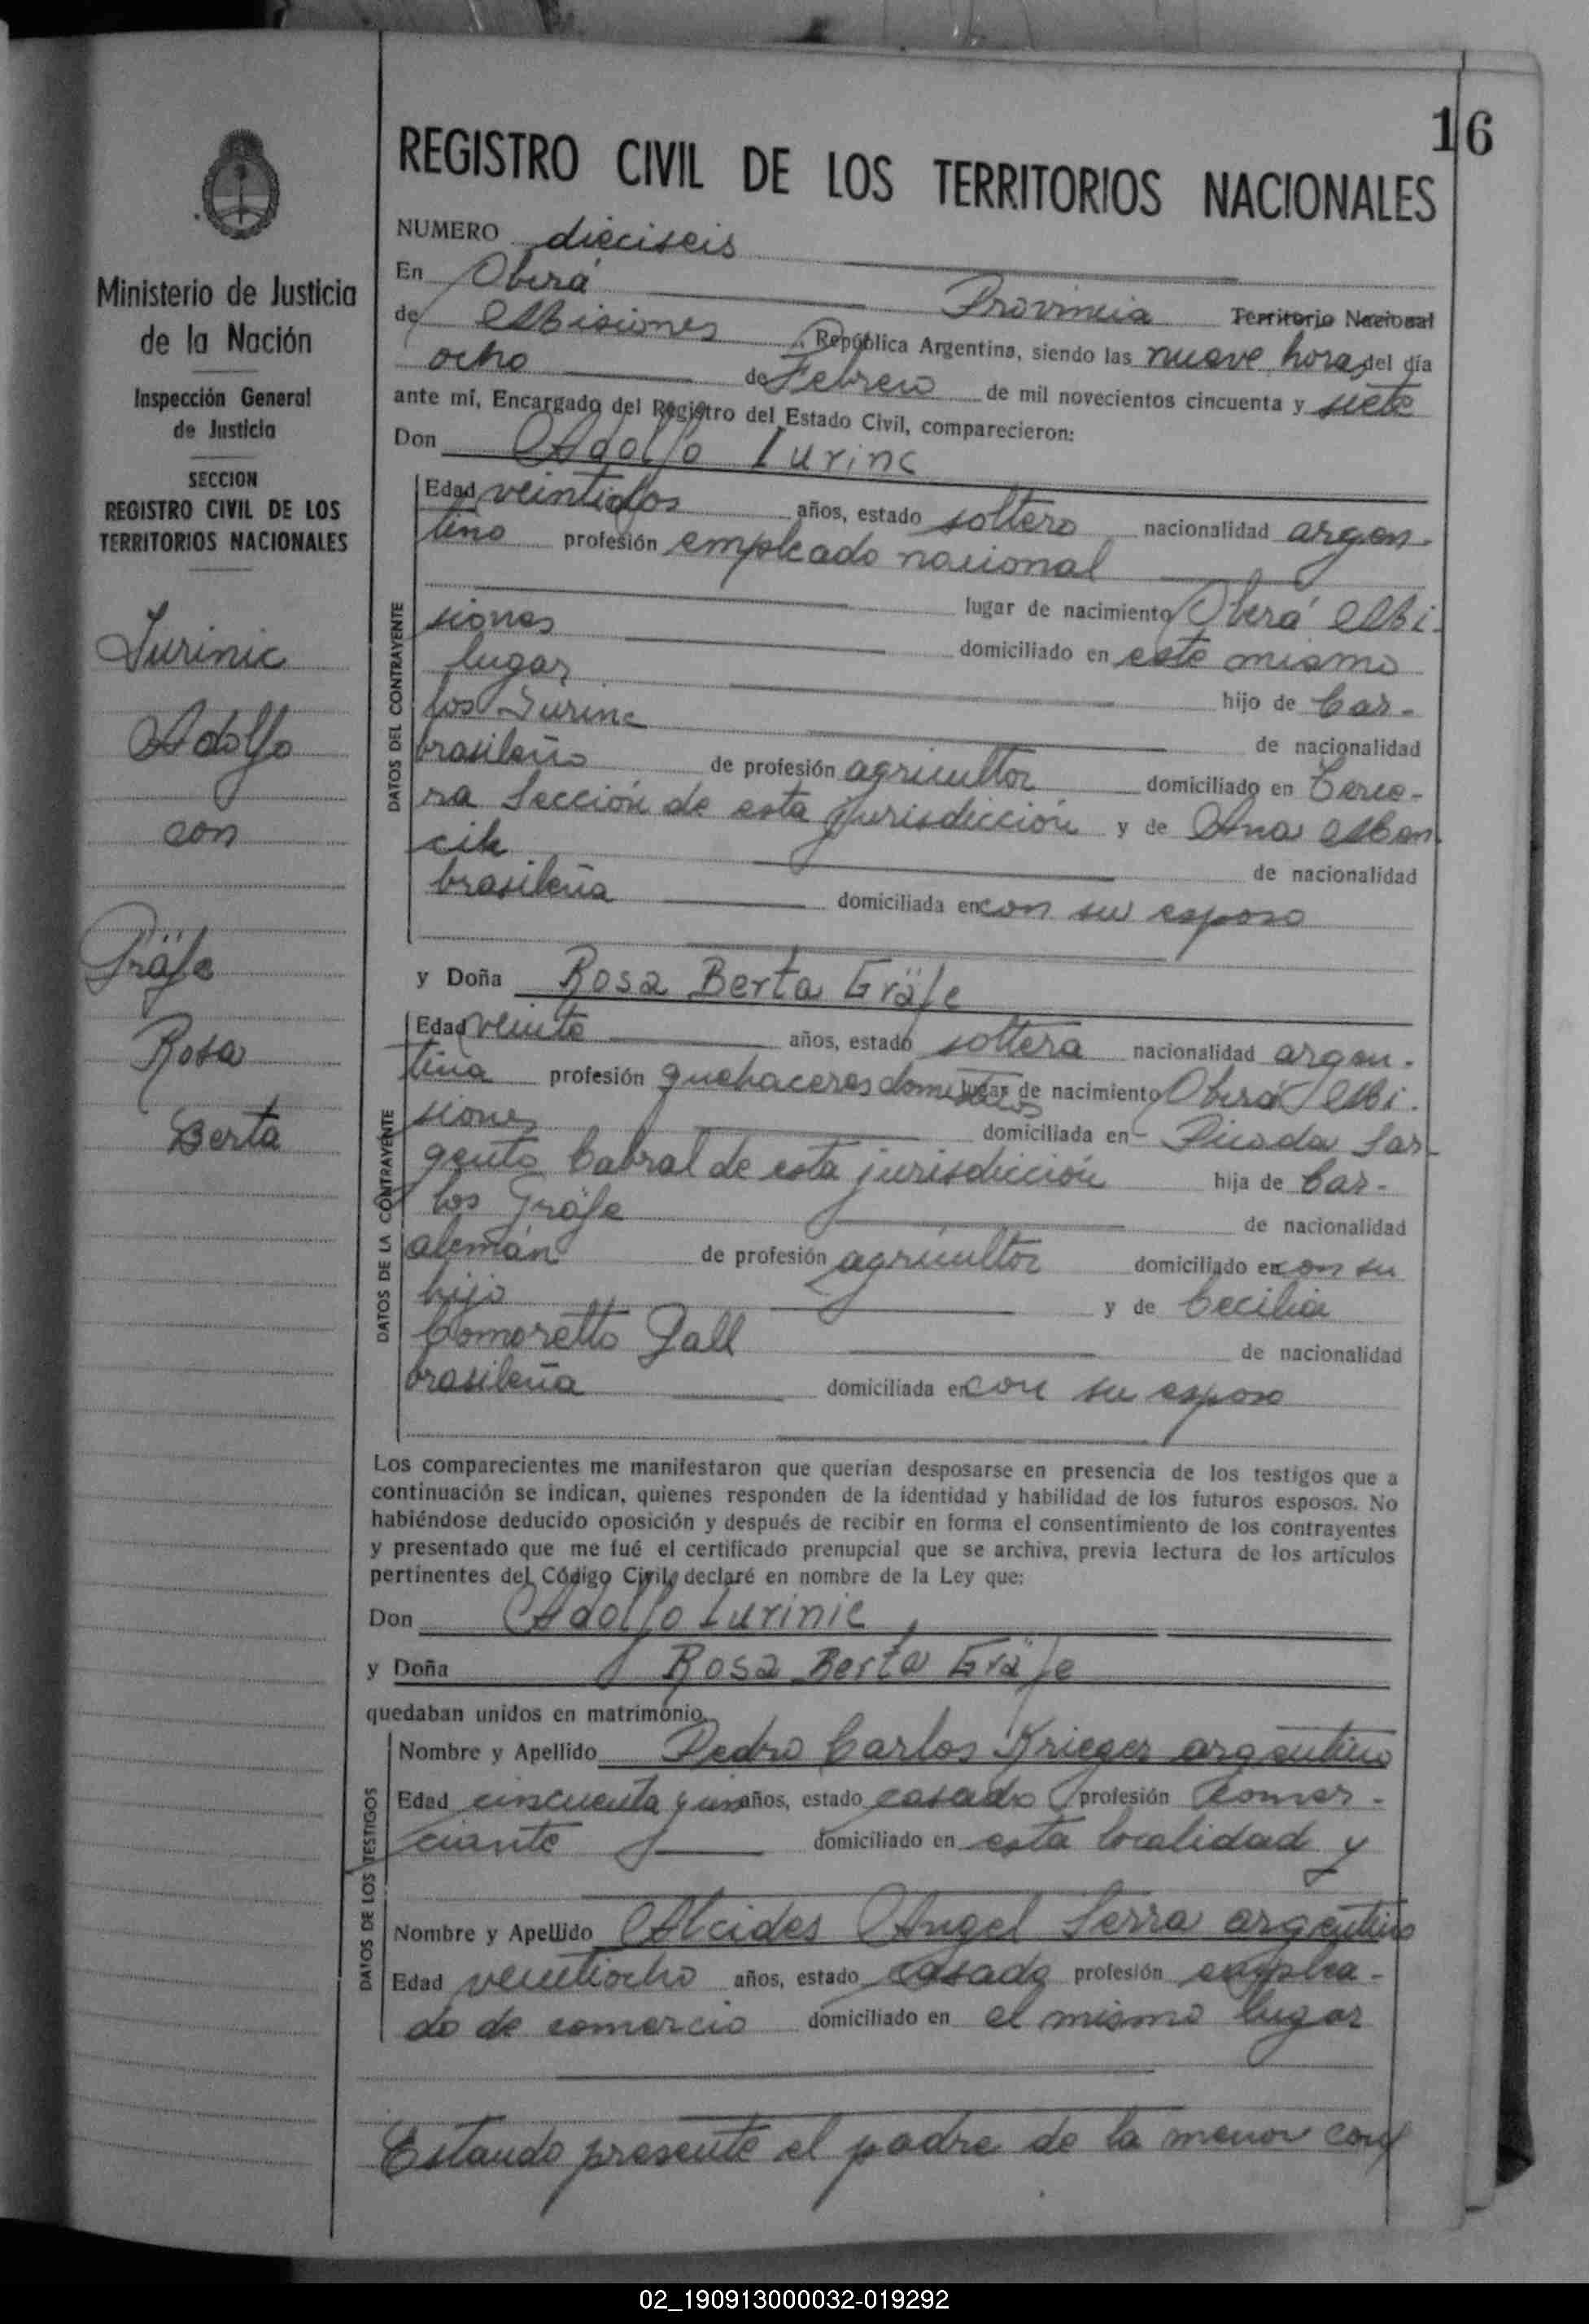 16
REGISTRO CIVIL DE LOS TERRITORIOS NACIONALES
Ministerio de Justicia
de la Nación
Inspección General
de Justicia
SECCION
REGISTRO CIVIL DE LOS
TERRITORIOS NACIONALES
Iurinic
Adolfo
con
Gräfe
Rosa
Berta
NUMERO dieciseis
En Oberá Provincia Territorio Nacional
de Misiones República Argentina, siendo las nueve horas del día
ocho de Febrero de mil novecientos cincuenta y siete
ante mí, Encargado del Registro del Estado Civil, comparecieron:
Don Adolfo Iurinc
DATOS DEL CONTRAYENTE
Edad veintidos años, estado soltero nacionalidad argen-
tino profesión empleado nacional
lugar de nacimiento Oberá Mi-
siones domiciliado en este mismo
lugar hijo de Car-
los Iurinc de nacionalidad
brasileño de profesión agricultor domiciliado en Terce-
ra Sección de esta jurisdicción y de Ana
cik de nacionalidad
brasileña domiciliada en con su esposo
y Doña Rosa Berta Gräfe
DATOS DE LA CONTRAYENTE
Edad veinte años, estado soltera nacionalidad argen-
tina profesión quehaceres domesticos lugar de nacimiento Oberá Mi-
siones domiciliada en Picada Sar-
gento Cabral de esta jurisdicción hija de Car-
los Gräfe de nacionalidad
alemán de profesión agricultor domiciliado en con su
hija y de Cecilia
Comoretto Gall de nacionalidad
brasileña domiciliada en con su esposo
Los comparecientes me manifestaron que querían desposarse en presencia de los testigos que a
continuación se indican, quienes responden de la identidad y habilidad de los futuros esposos. No
habiéndose deducido oposición y después de recibir en forma el consentimiento de los contrayentes
y presentado que me fué el certificado prenupcial que se archiva, previa lectura de los artículos
pertinentes del Código Civil, declaré en nombre de la Ley que:
Don Adolfo Iurinic,
y Doña Rosa Berta Gräfe
quedaban unidos en matrimonio.
DATOS DE LOS TESTIGOS
Nombre y Apellido Pedro Carlos Krieger argentino
Edad cincuenta y un años, estado casado profesión Comer-
ciante domiciliado en esta localidad y
Nombre y Apellido Alcides Angel Serra argentino
Edad veintiocho años, estado casado profesión emplea-
do de comercio domiciliado en el mismo lugar
Estando presente el padre de la menor
02_190913000032-019292